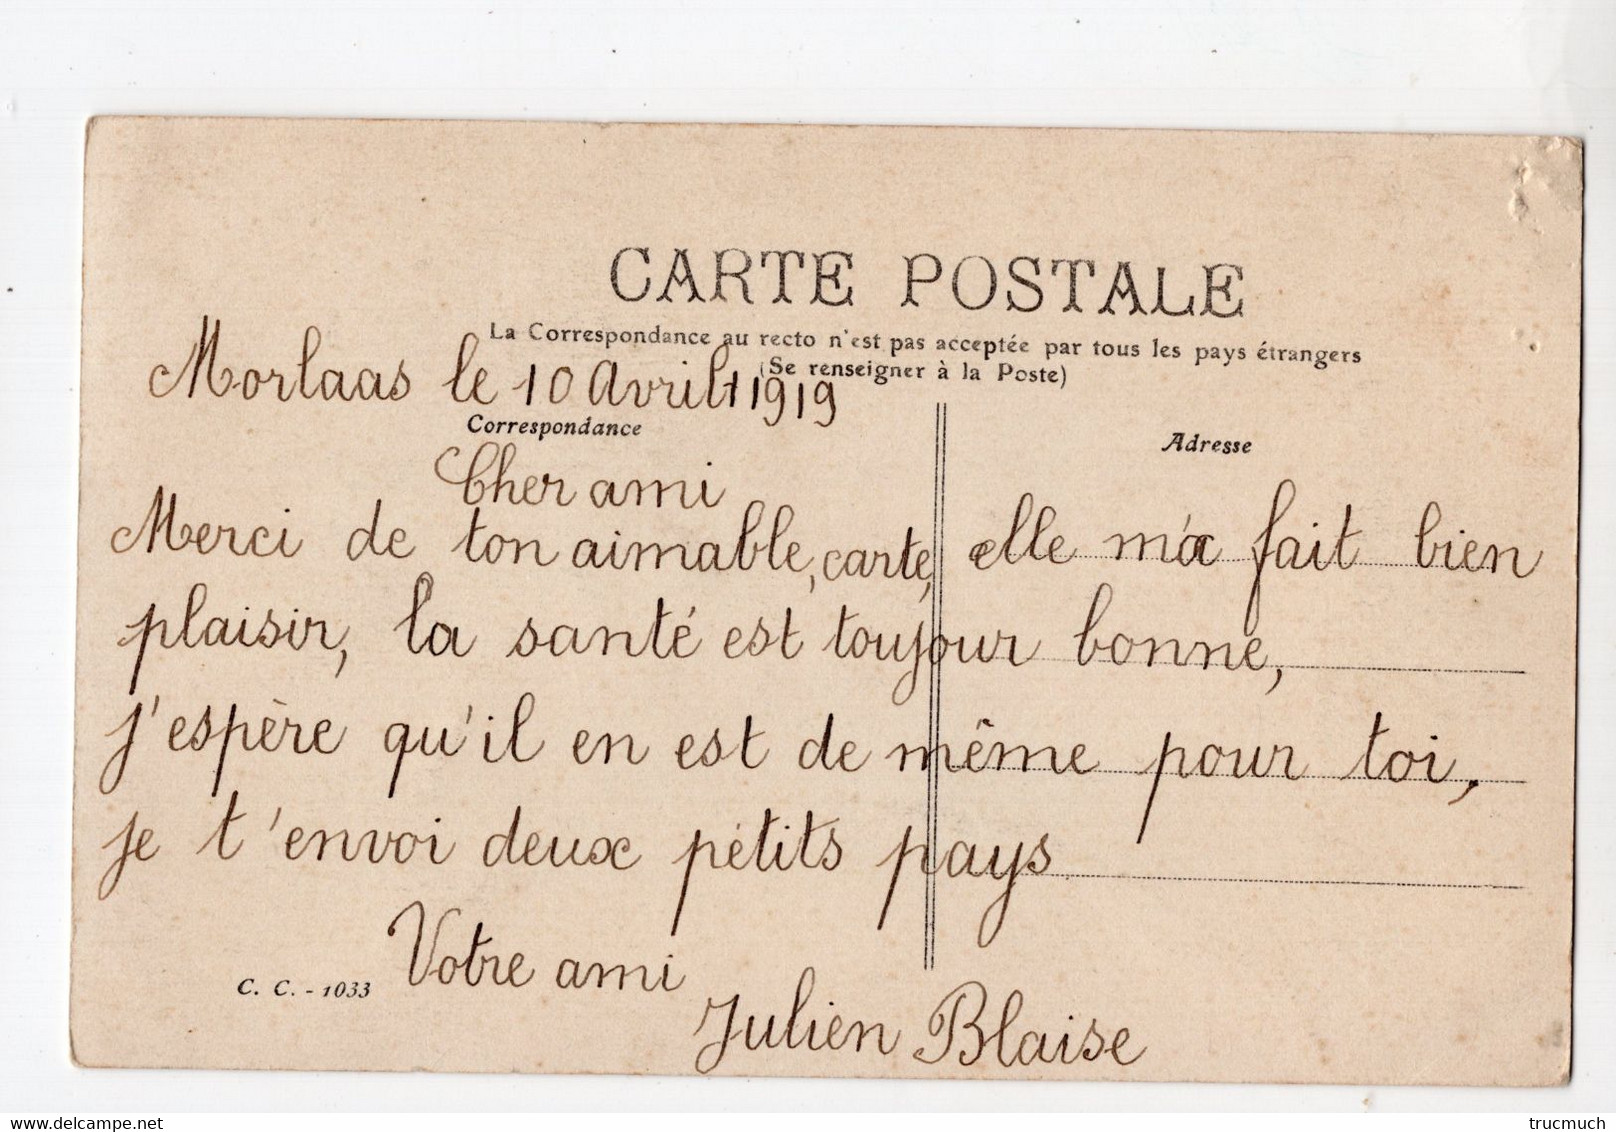 CARTE POSTALE
La Correspondance au recto n'est pas acceptée par tous les pays étrangers
(Se renseigner à la Poste)
Morlaas le 10 Avril 1919
Correspondance
Adresse
Cher ami
Merci de ton aimable, carte, elle m'a fait bien
plaisir, la santé est toujour bonne,
j'espère qu'il en est de même pour toi,
je t'envoi deux pétits pays
Votre ami
C. C. - 1033
Julien Blaise
www.delcampe.net
trucmuch